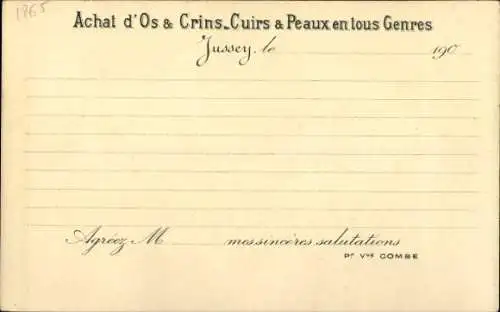 1865
Achat d'Os & Crins_Cuirs & Peaux en tous Genres
Jussey, le 190
Agréez M mes sincères salutations
Pr Vve COMBE